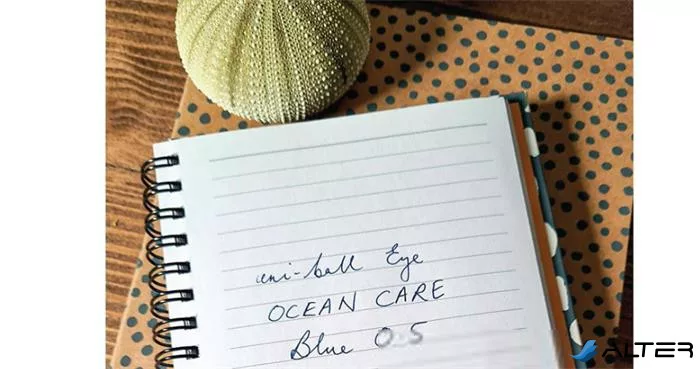 uni-ball Eye
OCEAN CARE
Blue 0.5
ALTER